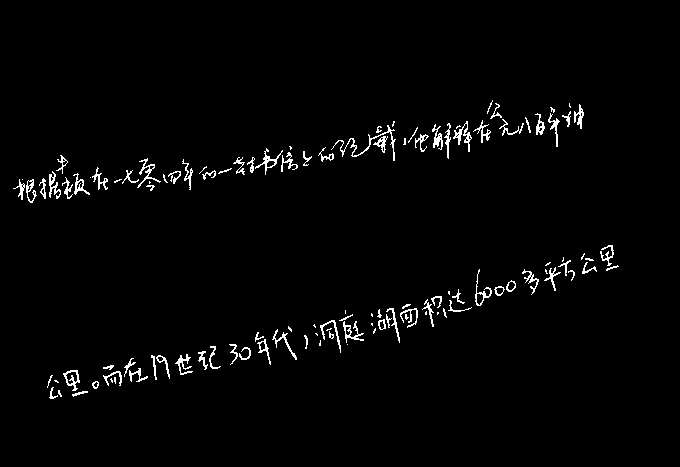 根据牛顿在一七零四年的一封书信上的记载，他解释在公元八百年神
公里。而在19世纪30年代，洞庭湖面积达6000多平方公里